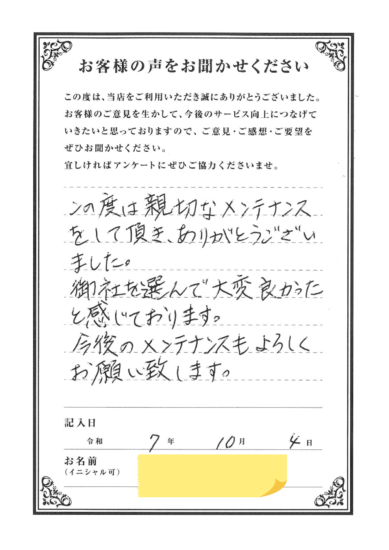 お客様の声をお聞かせください
この度は、当店をご利用いただき誠にありがとうございました。
お客様のご意見を生かして、今後のサービス向上につなげて
いきたいと思っておりますので、ご意見・ご感想・ご要望を
ぜひお聞かせください。
宜しければアンケートにぜひご協力くださいませ。
この度は親切なメンテナンス
をして頂き、ありがとうござい
ました。
御社を選んで大変良かった
と感じております。
今後のメンテナンスもよろしく
お願い致します。
記入日
令和 7年 10月 4日
お名前
(イニシャル可)